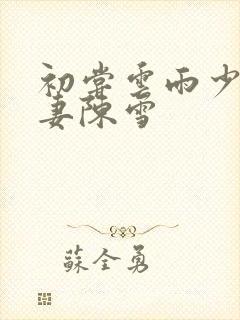 初尝雲雨少
妻陳雪
蘇全勇